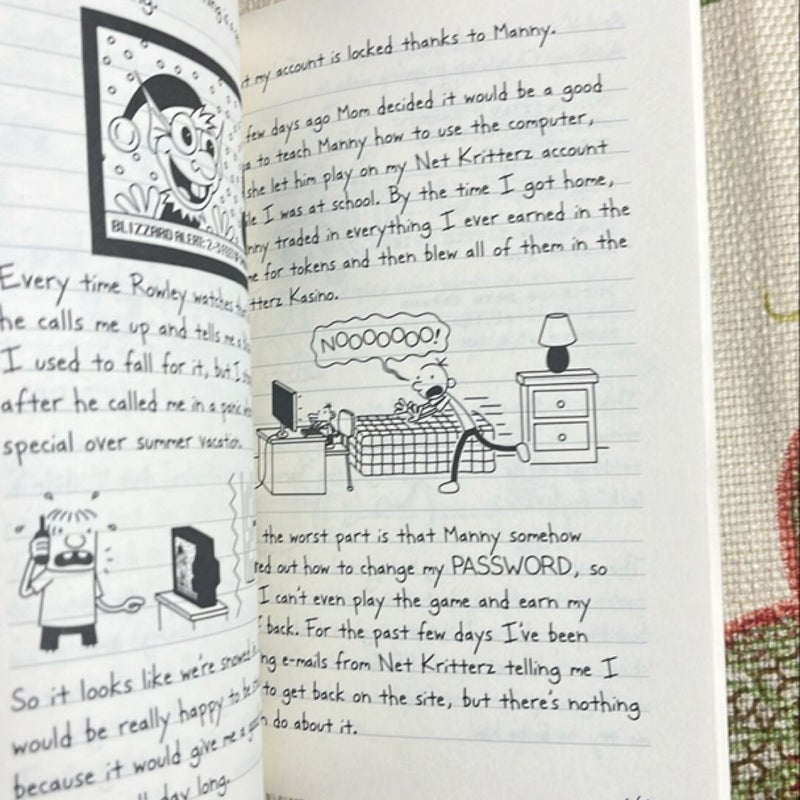 BLIZZARD ALERT: 2-3
Every time Rowley watches
he calls me up and tells me a
I used to fall for it, but I
after he called me in a panic
special over summer vacation.
So it looks like we're snowed
would be really happy to be
because it would give me a
day long.
my account is locked thanks to Manny.
few days ago Mom decided it would be a good
to teach Manny how to use the computer,
she let him play on my Net Kritterz account
I was at school. By the time I got home,
traded in everything I ever earned in the
for tokens and then blew all of them in the
Kasino.
NOOOOOOO!
the worst part is that Manny somehow
out how to change my PASSWORD, so
I can't even play the game and earn my
back. For the past few days I've been
e-mails from Net Kritterz telling me I
to get back on the site, but there's nothing
do about it.